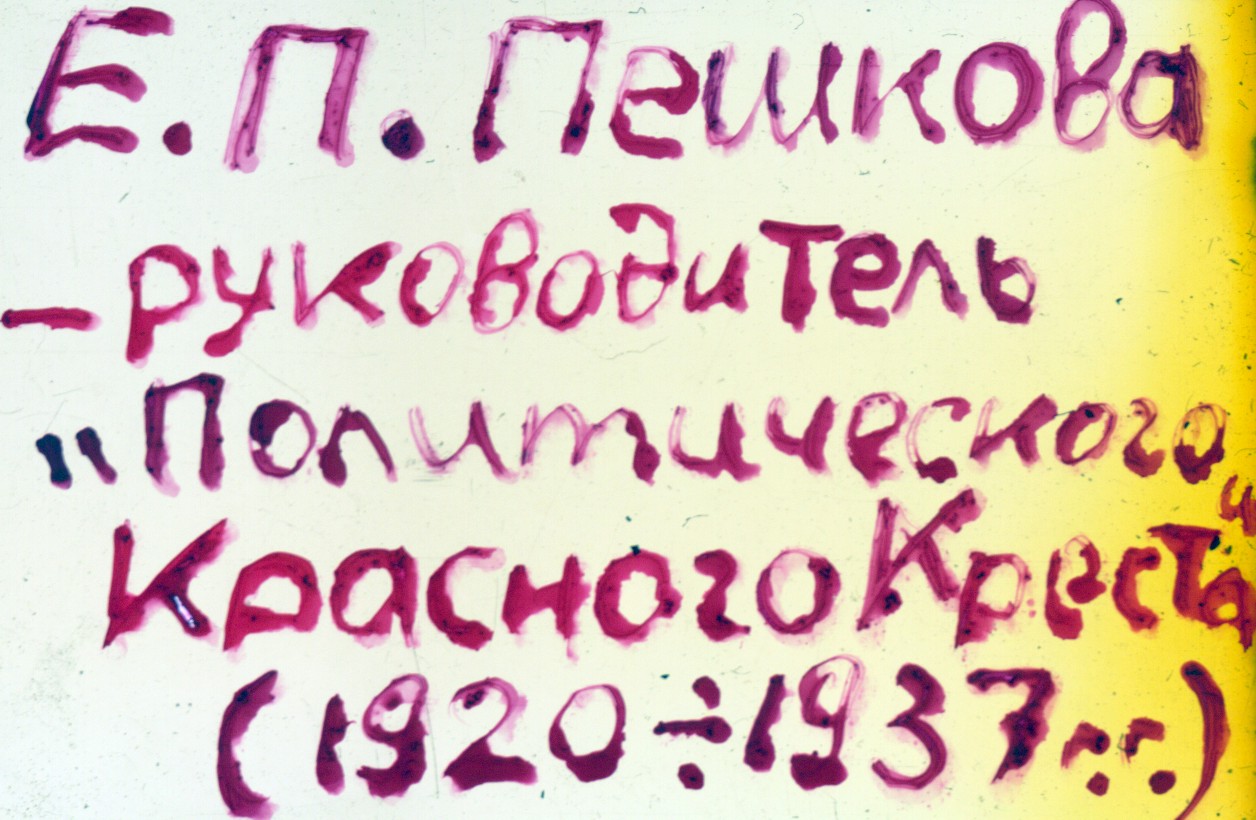 Е. П. Пешкова
– руководитель
"Политического
Красного Креста"
(1920÷1937г.г.)